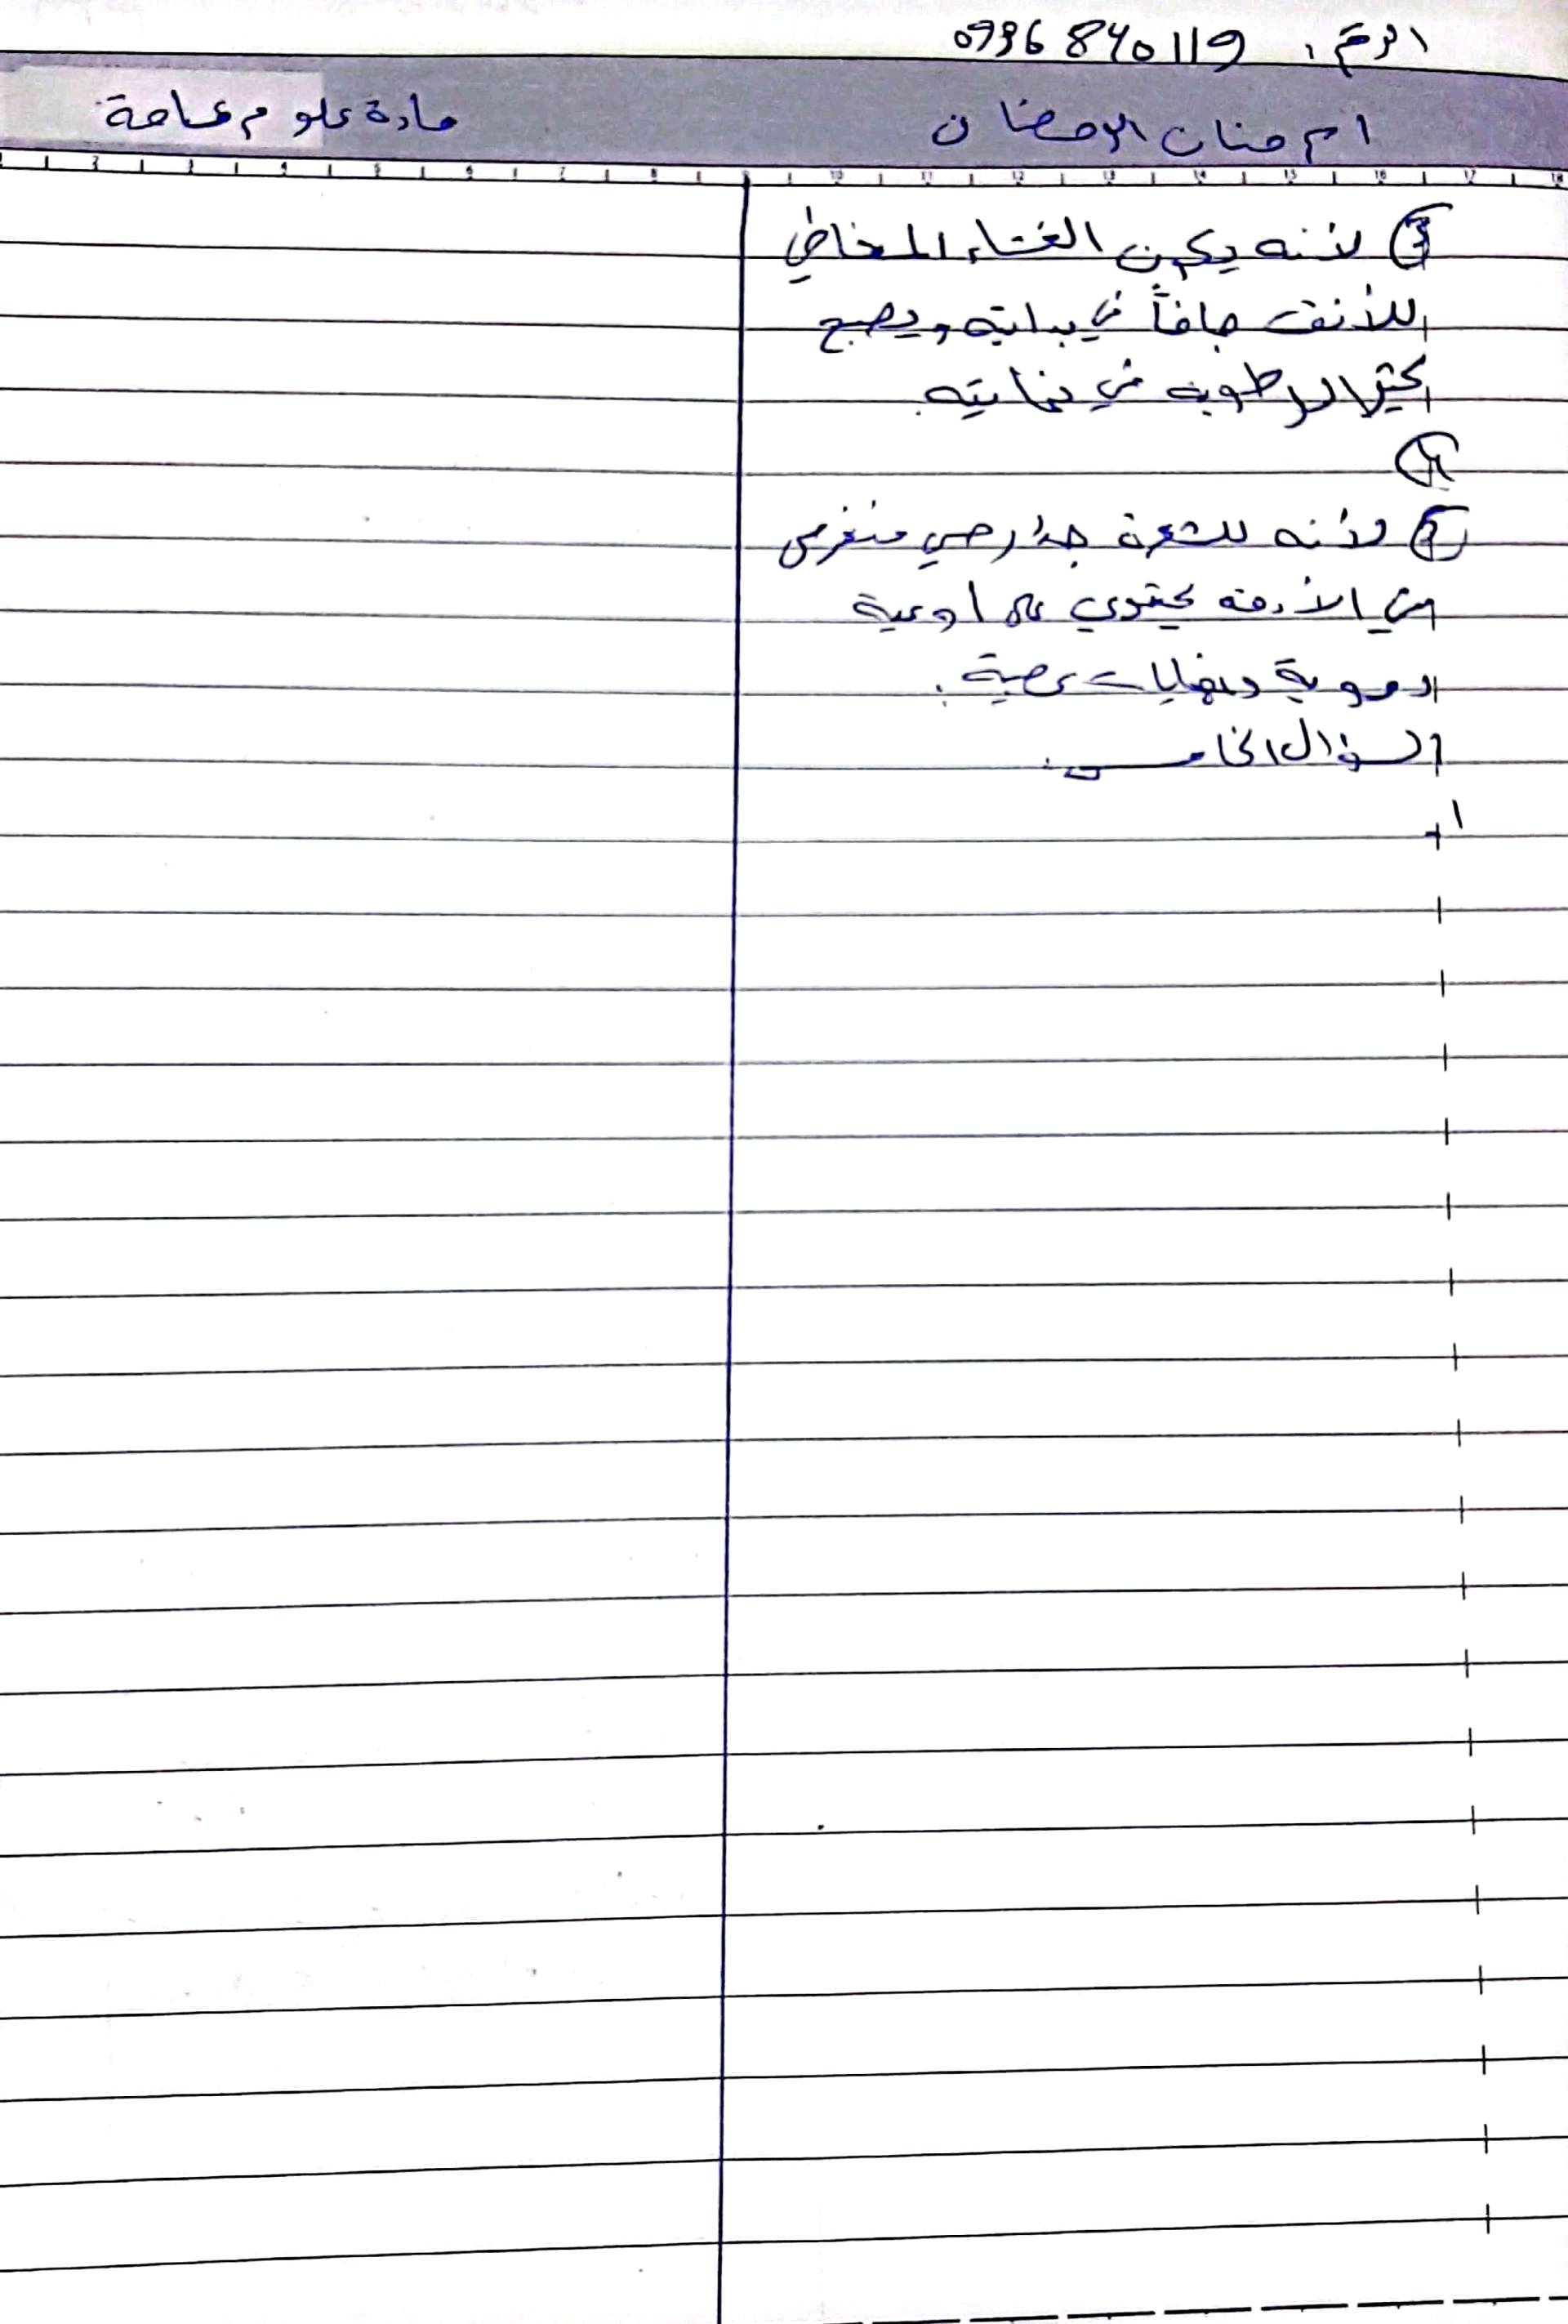 الرقم: 0996840119
ام حنان الرمضان
مادة علوم عامة
③ لأنه يكون الغشاء المخاطي
للأنف جافاً في بدايته ويصبح
كثير الرطوبة في نهايته.
④
⑤ لأنه للشعرة جذر حي منغرس
في الأدمة يحتوي على اوعية
دموية ونهايات عصبية.
السؤال الخامس:
1